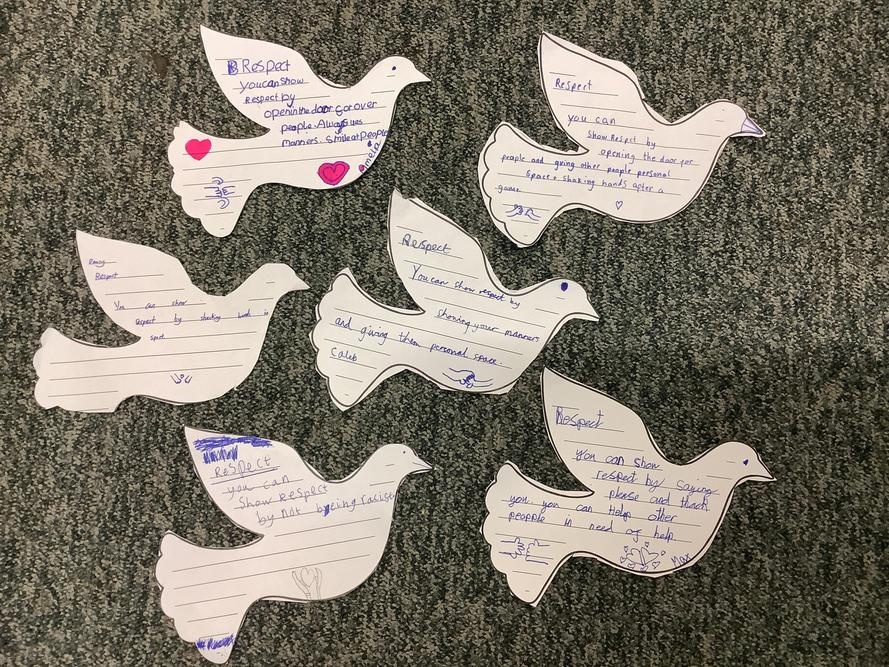 Respect
youcanshow
Respect by
openinthedoor for over
people. Always ues
manners. Smile at people
Amelia
Respect
you can
show Respct by
opening the door for
people and giving other people personal
space + shaking hands after a
game
Respect
You can show
respect by shacking hand in
sport
Respect
You can show respect by
showing your manners
and giving them personal space.
Caleb
Respect
you can
Show respect
by not byeing racist
Respect
you can show
respect by saying
please and thank
you, you can Help other
peopple in need of help
Max